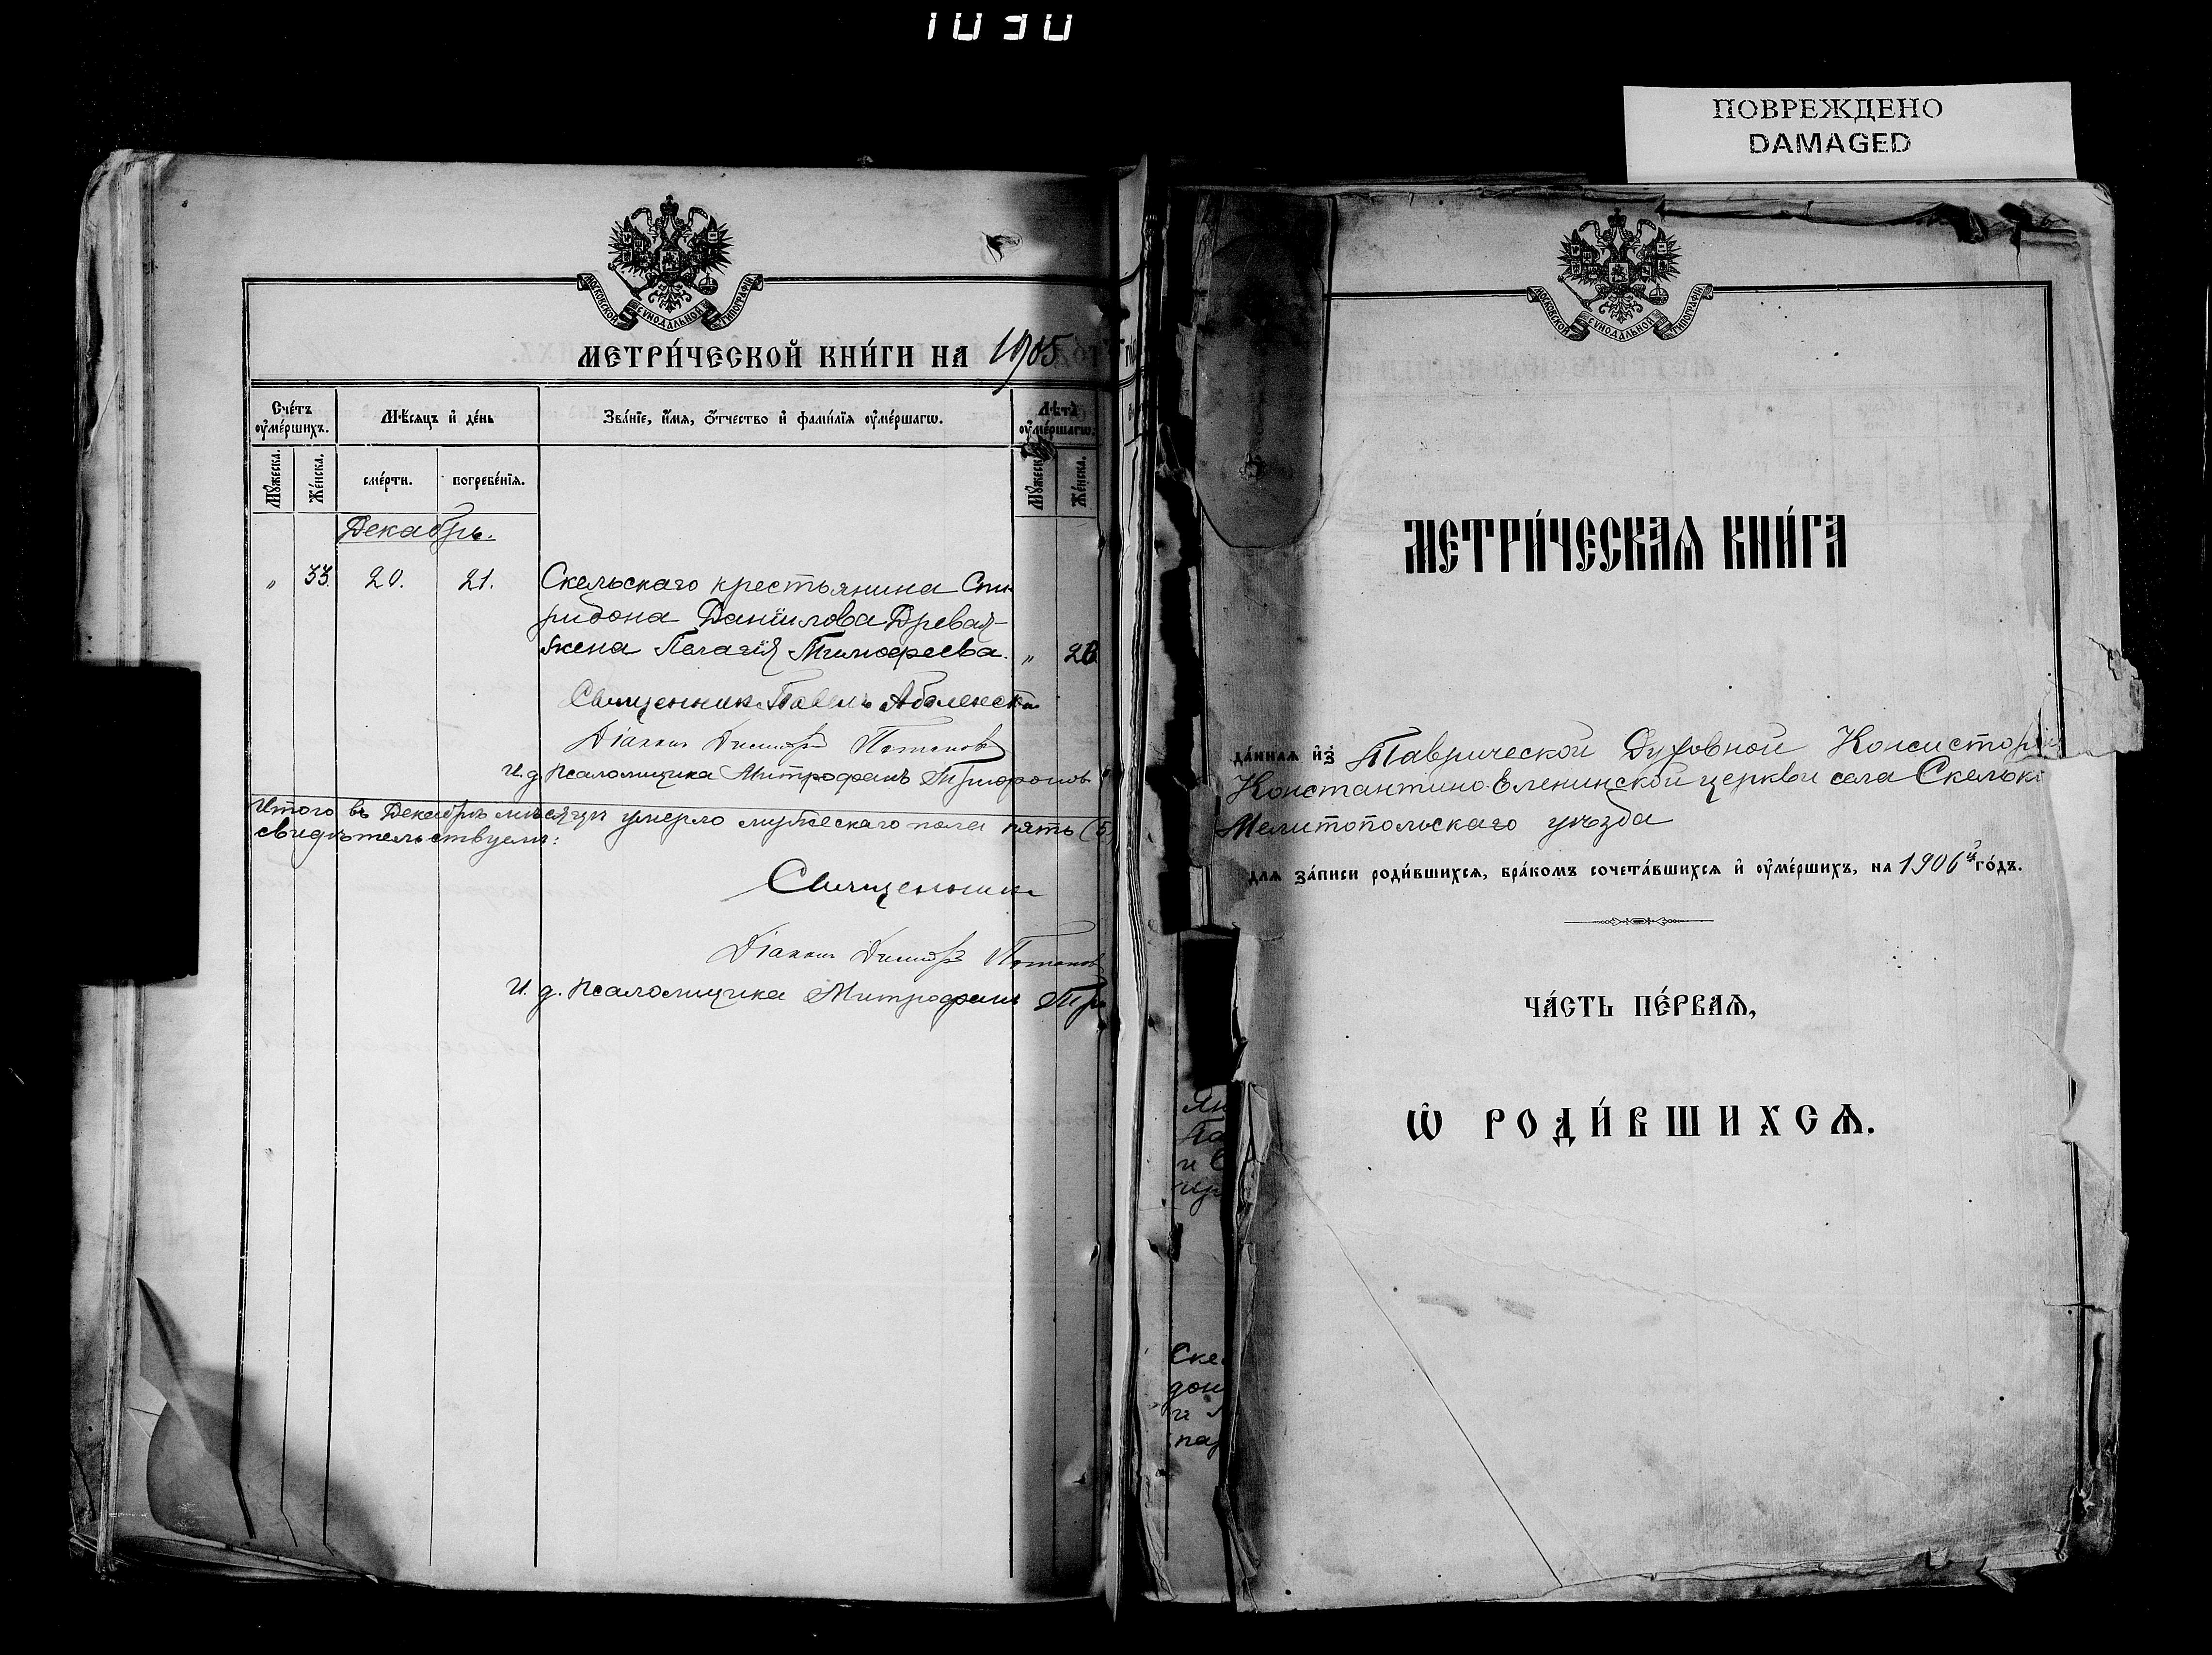 1030
ПОВРЕЖДЕНО
DAMAGED
МОСКОВСКОЙ СѴНОДАЛЬНОЙ ТИПОГРАФІИ
МЕТРИ́ЧЕСКОЙ КНИ́ГИ НА 1905
Сче́тъ ᲂу҆ме́ршихъ.
Мѣ́сяцъ и҆ де́нь
Зва́нїе, и҆́мѧ, ѻ҆́тчество и҆ фами́лїѧ ᲂу҆ме́ршагѡ.
Лѣ́та ᲂу҆ме́ршагѡ.
Мꙋ́жеска.
Же́нска.
сме́рти.
погребе́нїѧ.
Мꙋ́жеск
Же́нска.
Декабрь.
" 33. 20. 21. Скельскаго крестьянина Спи-
ридона Даніилова Древаль
жена Пелагія Тимофеева. "
Священник Павелъ
Діаконъ Димитрій Потапов
И. д. Псаломщика Митрофанъ
Итого въ Декабрѣ мѣсяцѣ умерло мужескаго пола пять (5)
свидѣтельствуемъ:
Священник
Діаконъ Димитрій Потапов
И. д. Псаломщика Митрофанъ
МОСКОВСКОЙ СѴНОДАЛЬНОЙ ТИПОГРАФІИ
МЕТРИ́ЧЕСКАѦ КНИ́ГА
да́ннаѧ и҆з̾ Таврической Духовной Консисторіи
Константино-Еленинской церкви села Скельки
Мелитопольскаго уѣзда
длѧ за́писи роди́вшихсѧ, бра́комъ сочета́вшихсѧ и҆ ᲂу҆ме́ршихъ, на 1906й го́дъ.
ЧА́СТЬ ПЕ́РВАѦ,
Ѡ҆ РОДИ́ВШИХСѦ.
Ске
дон